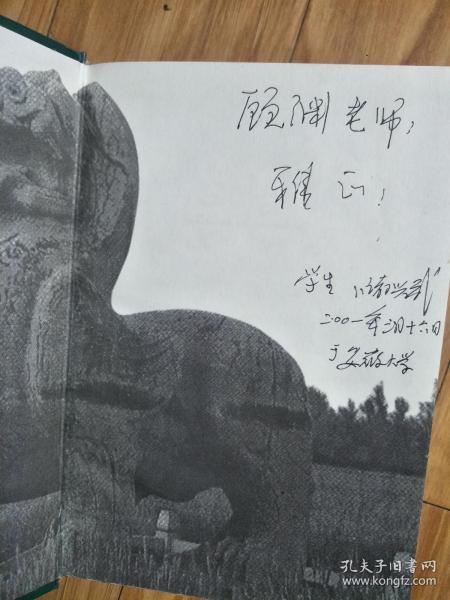 顾渊老师：
雅正！
学生
二〇〇一年三月十六日
于安徽大学
孔夫子旧书网
www.kongfz.com